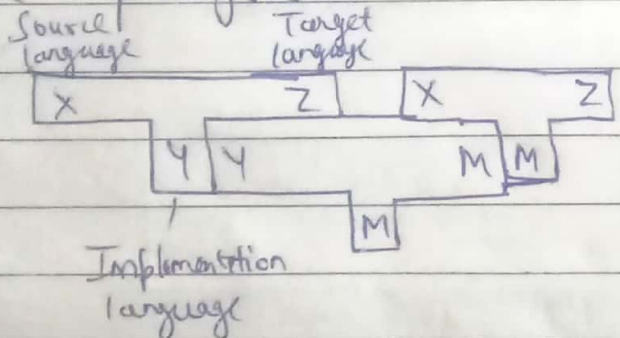 Source
language
Target
language
X Z X Z
Y Y M M
M
Implementation
language